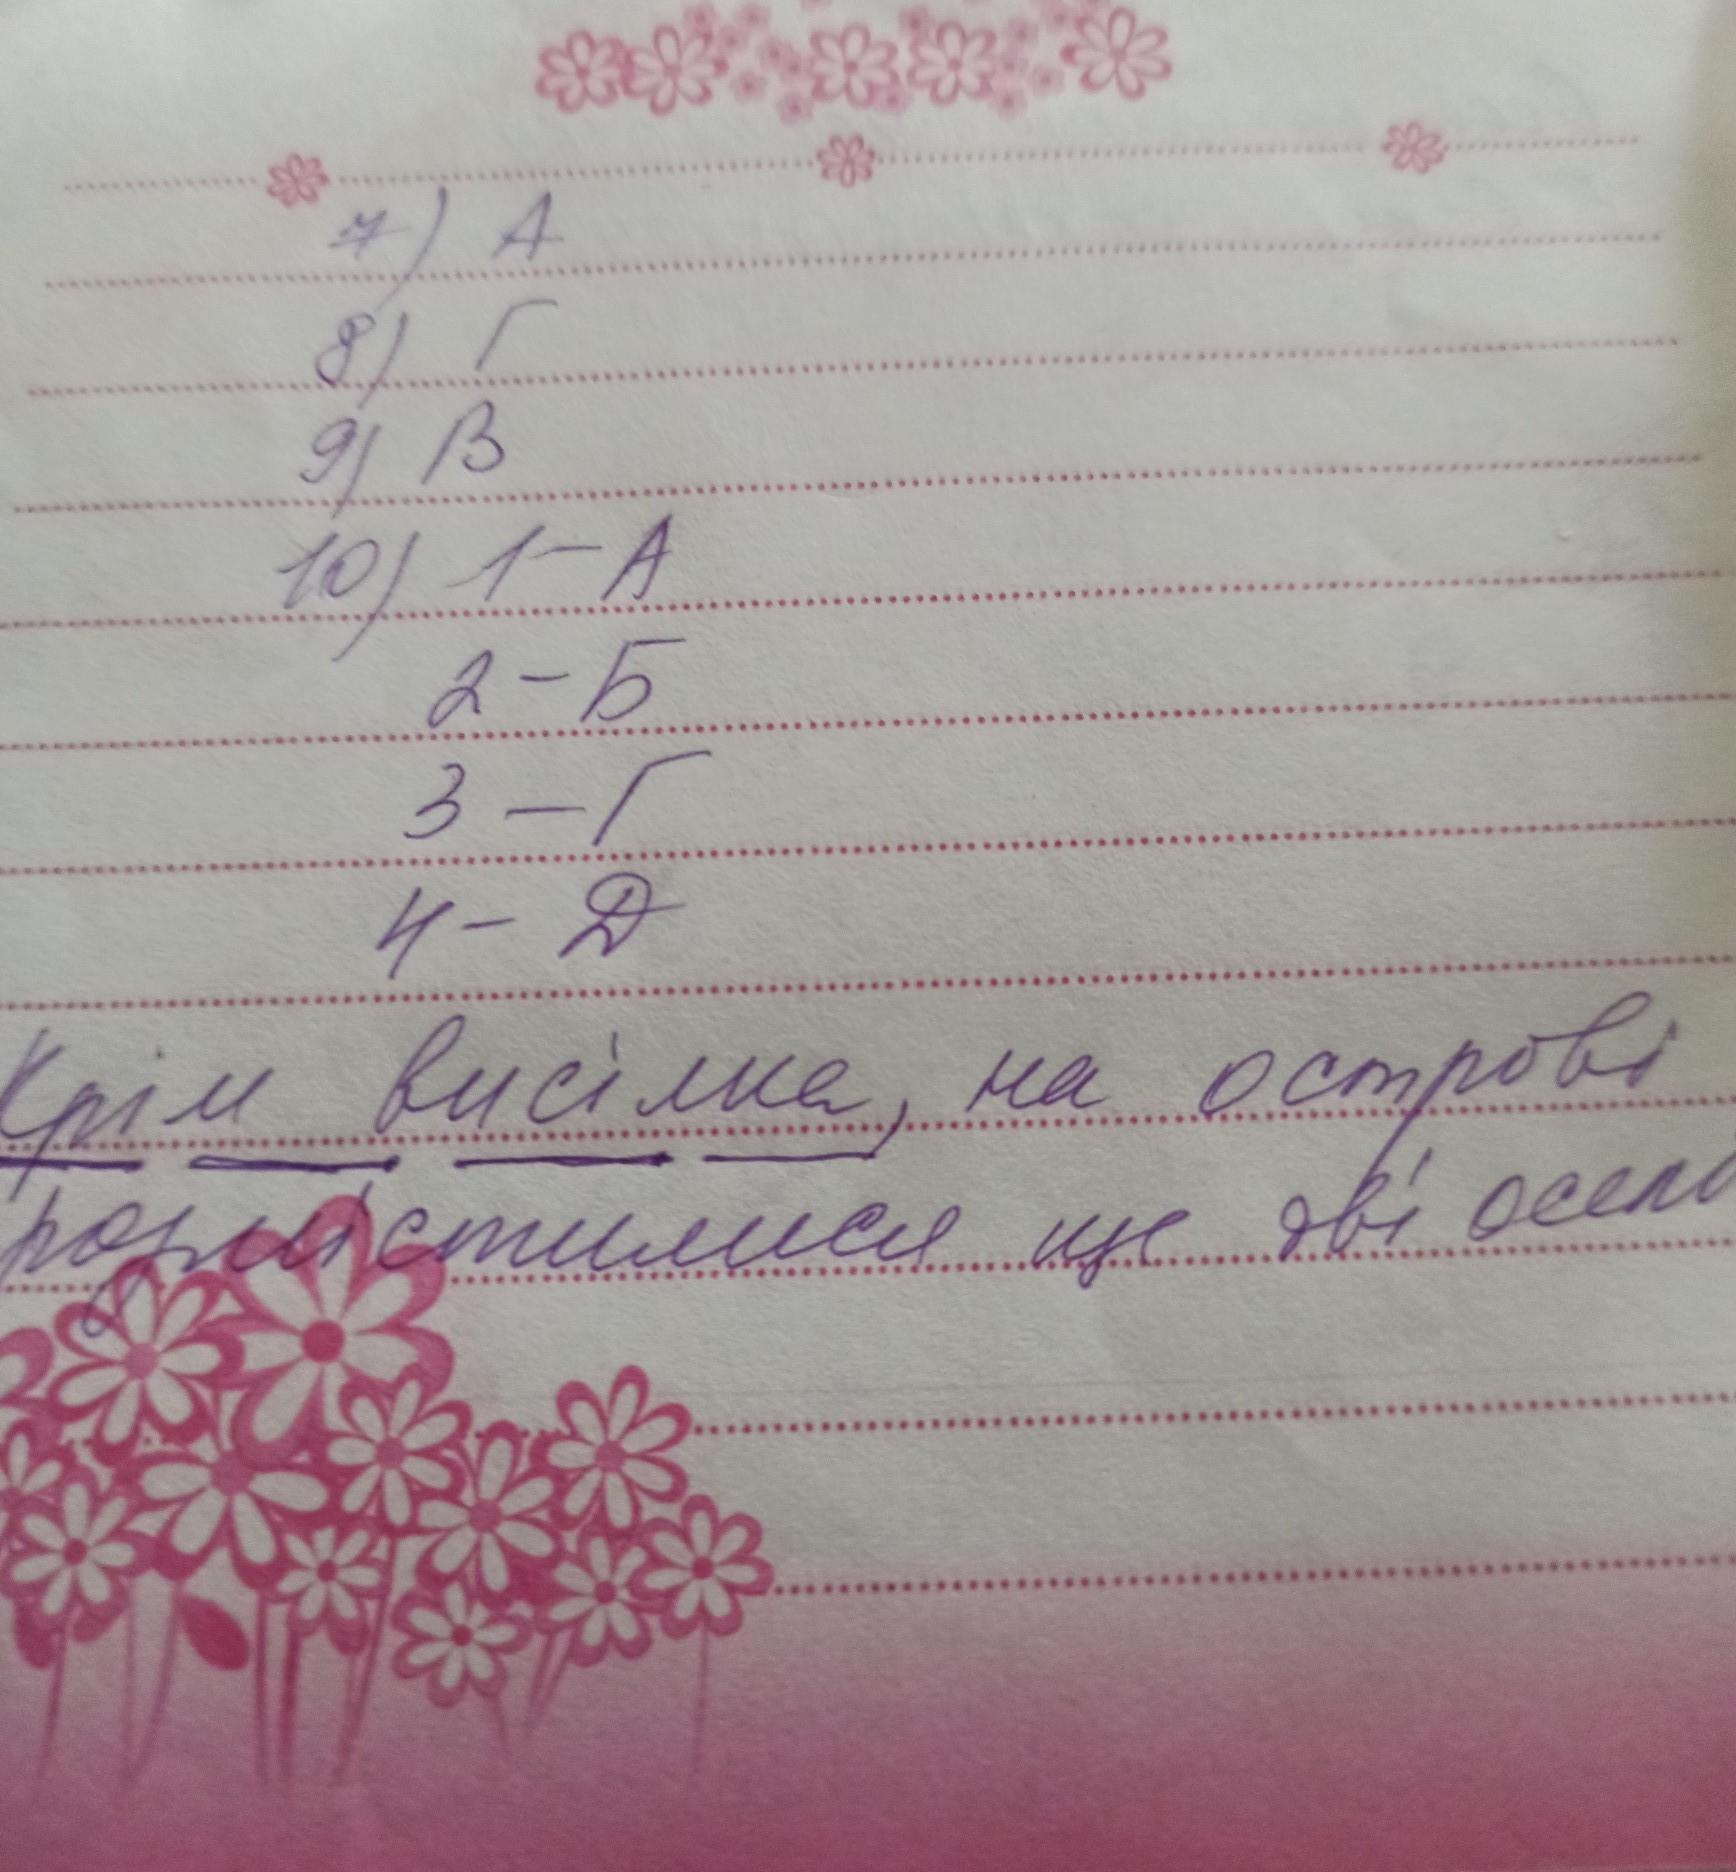 7) А
8) Г
9) В
10) 1 - А
2 - Б
3 - Г
4 - Д
Крім висілка, на острові
розмістилися ще дві